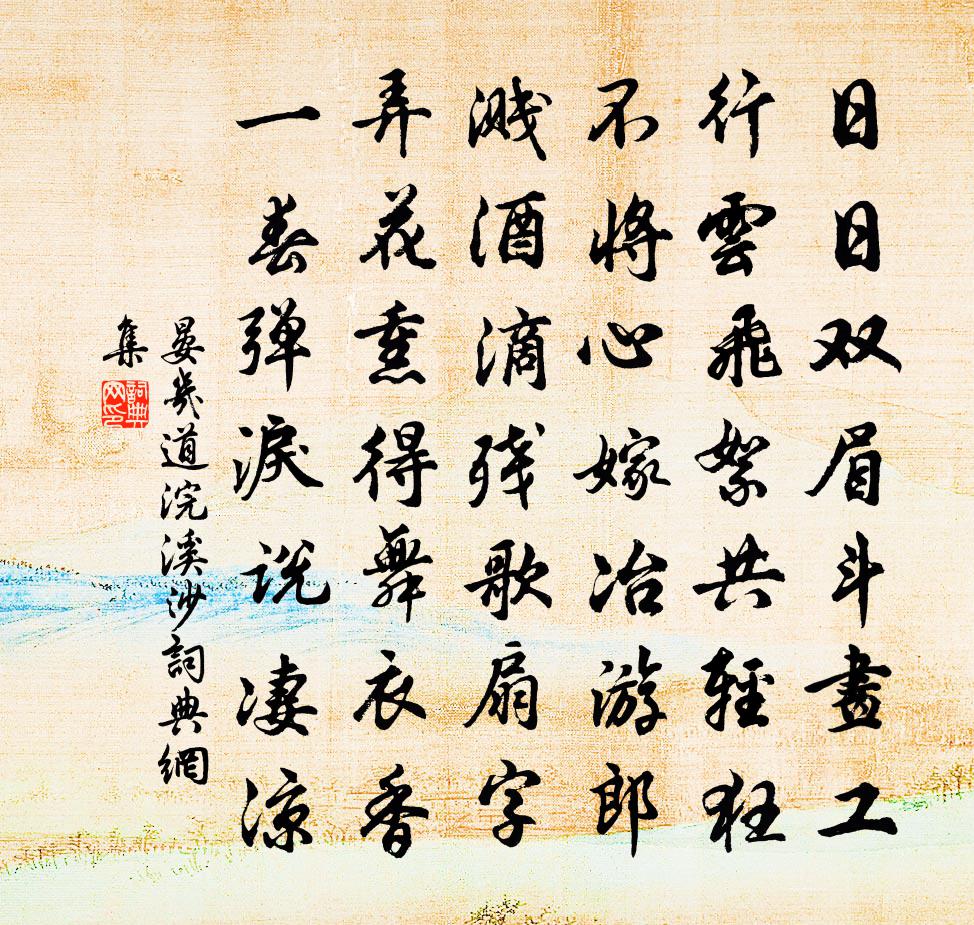 日日双眉斗畫工
行雲飛絮共輕狂
不將心嫁冶游郎
溅酒滴残歌扇字
弄花熏得舞衣香
一春彈淚説淒凉
晏幾道浣溪沙詞典網
集
詞典
网印